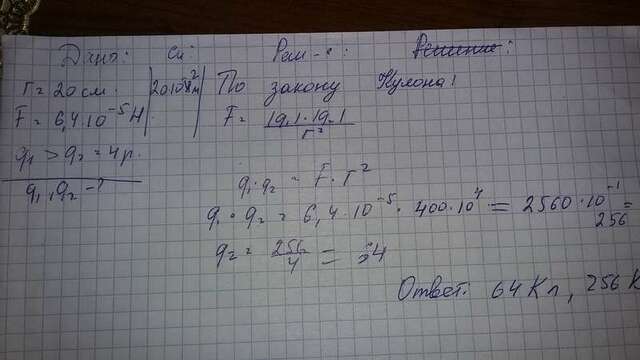 Дано: Си: Реш-е: Решение:
r = 20 см 20·10⁻²м По закону Кулона!
F = 6,4·10⁻⁵ Н F = |q.1·|q.1 / r²
q₁ > q₂ = 4 р.
q₁, q₂ - ?
q₁·q₂ = F·r²
q₁·q₂ = 6,4·10⁻⁵·400·10⁴ = 2560·10⁻¹ =
256
q₂ = 256/4 = 64
Ответ: 64 Кл, 256 К